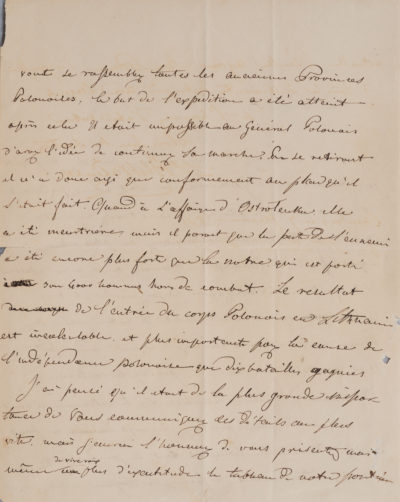 vont se rassembler toutes les anciennes Provinces
Polonaises, le but de l'expedition a été atteint
après cela il etait impossible au Général Polonais
d'avoir l'idée de continuer sa marche. En se retirant
il n'a donc agi que conformement au plan qu'il
s'etait fait Quand à l'affaire d'Ostrolenka elle
a été meurtrière mais il parait que la perte de l'ennemi
a été encore plus forte que la notre qui est porté
son 4000 hommes hors de combat. Le resultat
de l'entrée du corps Polonais en Lithuanie
est incalculable, et plus important pour la cause de
l'indépendance polonaise que dix batailles gagnées
J'ai pensé qu'il etait de la plus grande impor
tance de vous communiquer ces détails au plus
vite, mais j'aurai l'honneur de vous présenter
de vive voix
même plus d'exactitude le tableau de notre